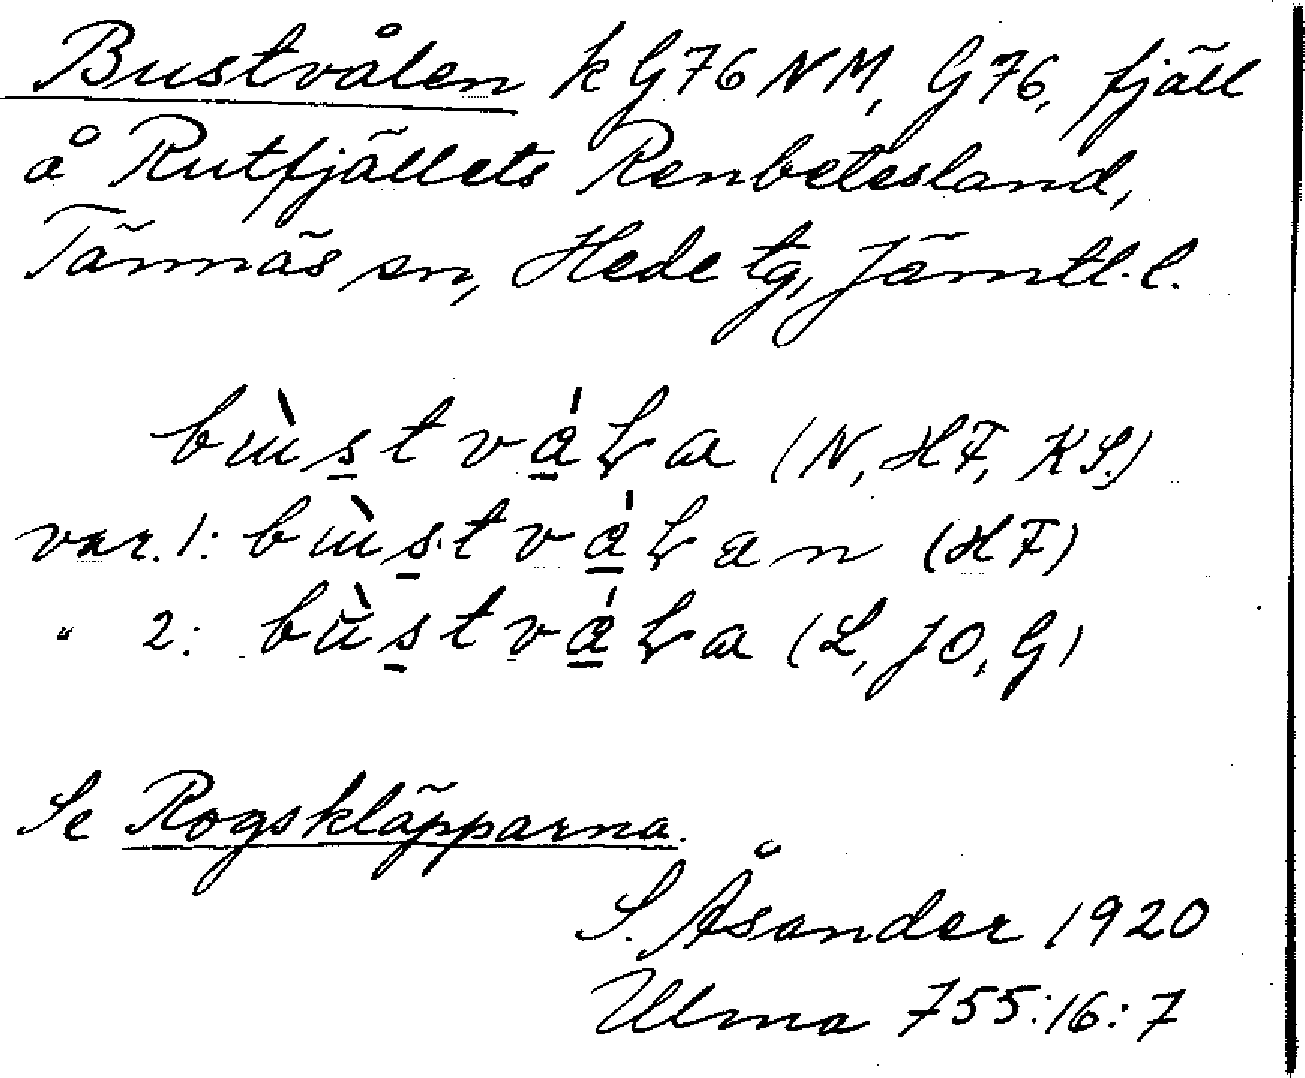 Bustvålen k G76 NM, G76, fjäll
å Rutfjällets Renbetesland,
Tännäs sn, Hede tg, Jämtl. l.
(N, HF, KS.)
var. 1: (HF)
" 2: (L, JO, G)
Se Rogskläpparna.
S. Åsander 1920
Ulma 755:16:7